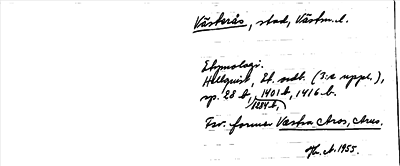 Västerås, stad, Västm. l.
Etymologi.
Hellquist, Et. ordb. (3:e uppl.),
sp. 28 b, 1401 b, 1416 b.
1284 b,
Fsv. former Vestra Aros, Arus.
1955.